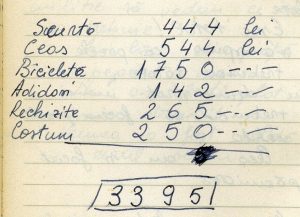 Scurtă 444 lei
Ceas 544 lei
Bicicletă 1750 ---
Adidași 142 ---
Rechizite 265 ---
Costum 250 ---
33951